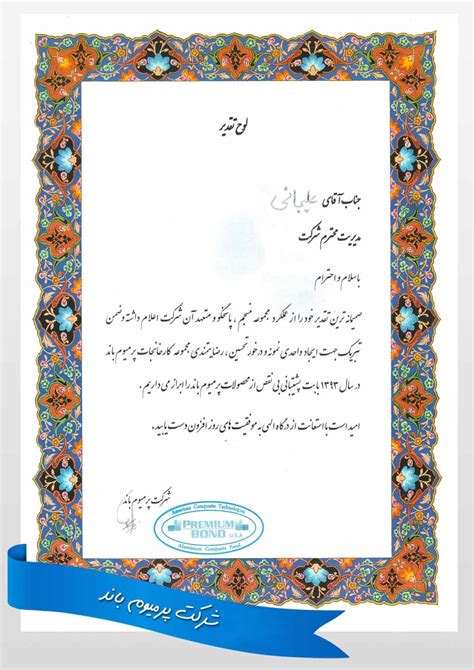 لوح تقدیر
جناب آقای علیجانی
مدیریت محترم شرکت
با سلام و احترام
صمیمانه ترین تقدیر خود را از عملکرد مجموعه منسجم ، پاسخگو و متعهد آن شرکت اعلام داشته و ضمن
تبریک جهت ایجاد واحدی نمونه و درخور تحسین ، رضایتمندی مجموعه کارخانجات پرمیوم باند
در سال ۱۳۹۳ بابت پشتیبانی بی نقص از محصولات پرمیوم باند را ابراز می داریم .
امید است با استعانت از درگاه الهی به موفقیت های روز افزون دست یابید .
شرکت پرمیوم باند
American Composite Technologies
PREMIUM
BOND U.S.A
Aluminium Composite Panel
شرکت پرمیوم باند